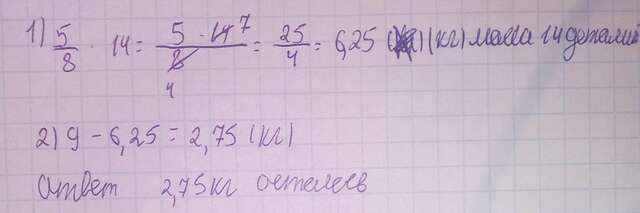 1) 5/8 · 14 = 5 · 14 7 / 8 4 = 25/4 = 6,25 (кг) масса 14 деталей
2) 9 - 6,25 = 2,75 (кг)
Ответ 2,75 кг осталось